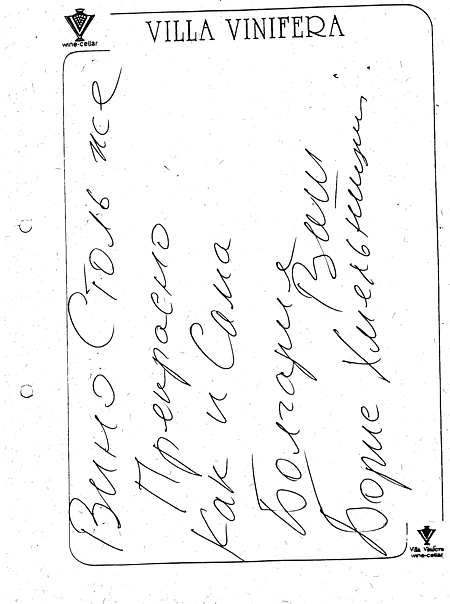 wine-cellar
VILLA VINIFERA
Вино Столь же
Прекрасно
Как и Сама
Болгария
Ваш
Борис Хмельницкий
Villa Vinifera
wine-cellar